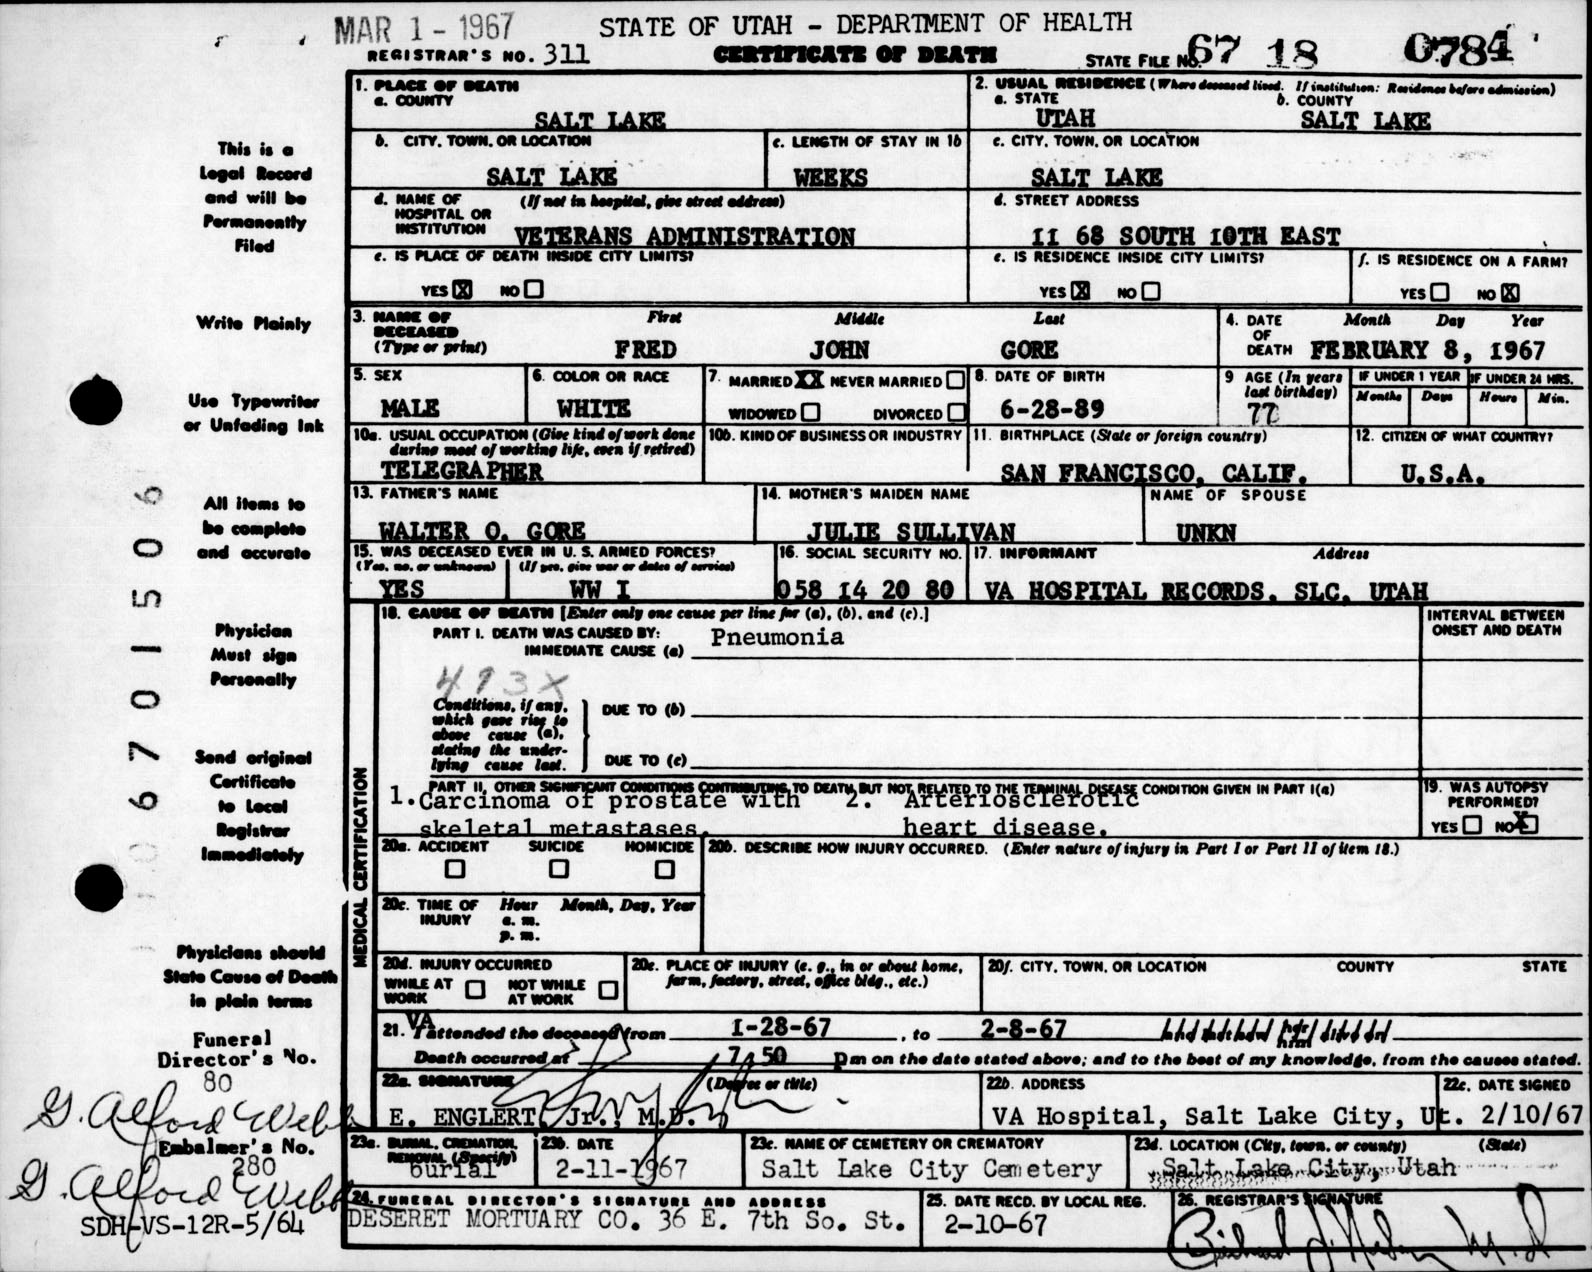 MAR 1 - 1967
STATE OF UTAH - DEPARTMENT OF HEALTH
REGISTRAR'S NO. 311
CERTIFICATE OF DEATH
STATE FILE NO. 67 18 0784
This is a
Legal Record
and will be
Permanently
Filed
Write Plainly
Use Typewriter
or Unfading Ink
All items to
be complete
and accurate
Physician
Must sign
Personally
Send original
Certificate
to Local
Registrar
Immediately
Physicians should
State Cause of Death
in plain terms
Funeral
Director's No.
80
G. Alford Webb
Embalmer's No.
280
G. Alford Webb
SDH-VS-12R-5/64
06701506
1. PLACE OF DEATH
a. COUNTY
SALT LAKE
2. USUAL RESIDENCE (Where deceased lived. If institution: Residence before admission)
a. STATE b. COUNTY
UTAH SALT LAKE
b. CITY, TOWN, OR LOCATION
SALT LAKE
c. LENGTH OF STAY IN 1b
WEEKS
c. CITY, TOWN, OR LOCATION
SALT LAKE
d. NAME OF (If not in hospital, give street address)
HOSPITAL OR
INSTITUTION VETERANS ADMINISTRATION
d. STREET ADDRESS
II 68 SOUTH I0TH EAST
e. IS PLACE OF DEATH INSIDE CITY LIMITS?
YES X NO
e. IS RESIDENCE INSIDE CITY LIMITS?
YES X NO
f. IS RESIDENCE ON A FARM?
YES NO X
3. NAME OF First Middle Last
DECEASED
(Type or print) FRED JOHN GORE
4. DATE Month Day Year
OF
DEATH FEBRUARY 8, I967
5. SEX
MALE
6. COLOR OR RACE
WHITE
7. MARRIED XX NEVER MARRIED
WIDOWED DIVORCED
8. DATE OF BIRTH
6-28-89
9 AGE (In years
last birthday)
77
IF UNDER 1 YEAR IF UNDER 24 HRS.
Months Days Hours Min.
10a. USUAL OCCUPATION (Give kind of work done
during most of working life, even if retired)
TELEGRAPHER
10b. KIND OF BUSINESS OR INDUSTRY
11. BIRTHPLACE (State or foreign country)
SAN FRANCISCO, CALIF.
12. CITIZEN OF WHAT COUNTRY?
U.S.A.
13. FATHER'S NAME
WALTER O. GORE
14. MOTHER'S MAIDEN NAME
JULIE SULLIVAN
NAME OF SPOUSE
UNKN
15. WAS DECEASED EVER IN U. S. ARMED FORCES?
(Yes, no, or unknown) (If yes, give war or dates of service)
YES WW I
16. SOCIAL SECURITY NO.
058 I4 20 80
17. INFORMANT Address
VA HOSPITAL RECORDS. SLC, UTAH
MEDICAL CERTIFICATION
18. CAUSE OF DEATH [Enter only one cause per line for (a), (b), and (c).]
PART I. DEATH WAS CAUSED BY:
IMMEDIATE CAUSE (a) Pneumonia
INTERVAL BETWEEN
ONSET AND DEATH
493X
Conditions, if any,
which gave rise to
above cause (a),
stating the under-
lying cause last.
DUE TO (b)
DUE TO (c)
PART II, OTHER SIGNIFICANT CONDITIONS CONTRIBUTING TO DEATH BUT NOT RELATED TO THE TERMINAL DISEASE CONDITION GIVEN IN PART I(a)
1. Carcinoma of prostate with 2. Arteriosclerotic
skeletal metastases. heart disease.
19. WAS AUTOPSY
PERFORMED?
YES NO X
20a. ACCIDENT SUICIDE HOMICIDE
20b. DESCRIBE HOW INJURY OCCURRED. (Enter nature of injury in Part I or Part II of item 18.)
20c. TIME OF Hour Month, Day, Year
INJURY a. m.
p. m.
20d. INJURY OCCURRED
WHILE AT NOT WHILE
WORK AT WORK
20e. PLACE OF INJURY (e. g., in or about home,
farm, factory, street, office bldg., etc.)
20f. CITY, TOWN, OR LOCATION COUNTY STATE
21. VA I attended the deceased from I-28-67 , to 2-8-67
Death occurred at 7 50 pm on the date stated above; and to the best of my knowledge, from the causes stated.
22a. SIGNATURE (Degree or title)
E. ENGLERT, Jr., M.D.
22b. ADDRESS
VA Hospital, Salt Lake City, Ut.
22c. DATE SIGNED
2/10/67
23a. BURIAL, CREMATION,
REMOVAL (Specify)
burial
23b. DATE
2-11-1967
23c. NAME OF CEMETERY OR CREMATORY
Salt Lake City Cemetery
23d. LOCATION (City, town, or county) (State)
Salt Lake City, Utah
24. FUNERAL DIRECTOR'S SIGNATURE AND ADDRESS
DESERET MORTUARY CO. 36 E. 7th So. St.
25. DATE RECD. BY LOCAL REG.
2-10-67
26. REGISTRAR'S SIGNATURE